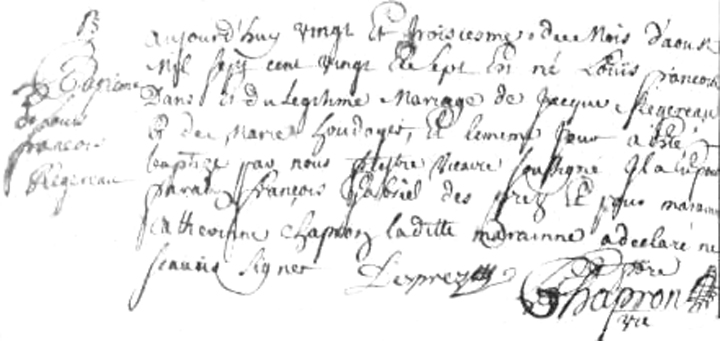 B
Baptesme
de Louis
françois
Regereau
aujourd'huy vingt Et troisiesme du Mois d'aoust
Mil sept cent vingt Et sept En né Loüis francois
Dans et du Legitime Mariage de Jacque Regereau
Et de Marie houdayer, Et le meme jour a esté
baptize par nous prestre vicaire soussigné Il a Eu pour
parain françois Gabriel des prez Et pour maraine
Catherinne Chapron laditte marainne a declaré ne
scavoir signer
Desprez
Chapron
ptre
vic